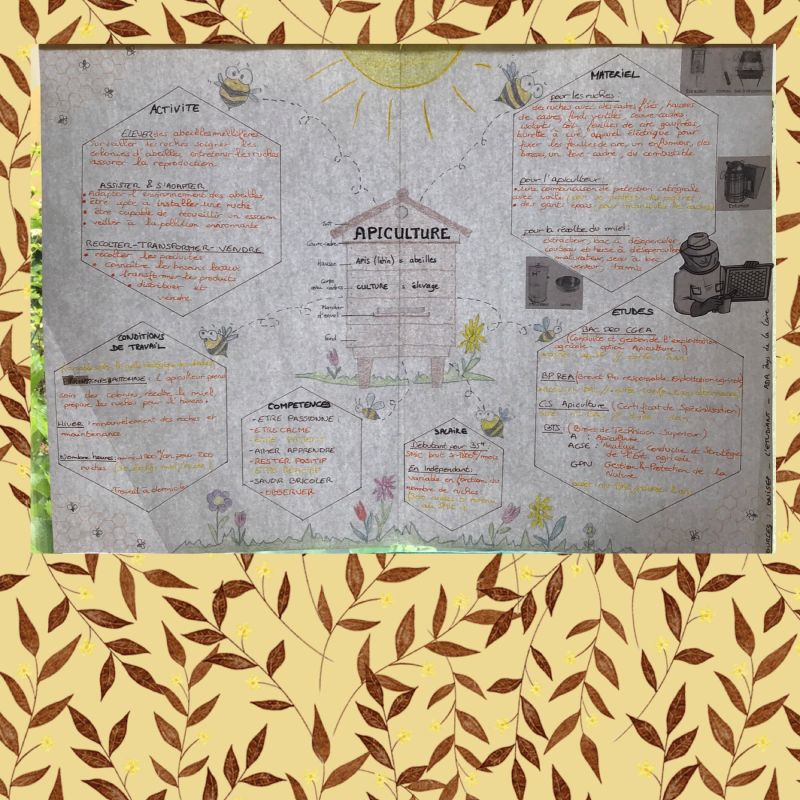 ACTIVITE
ELEVER des abeilles mellifères
surveiller les ruches soigner les
colonies d'abeilles entretenir les ruches
assurer la reproduction
ASSISTER & S'ADAPTER
Adapter l'environnement des abeilles
être apte à installer une ruche
être capable de recueillir un essaim
veiller à la pollution environnante
RECOLTER-TRANSFORMER-VENDRE
récolter les produits
connaître les besoins locaux
transformer les produits
distribuer et
vendre
MATERIEL
pour les ruches:
des ruches avec des cadres filés, hausses
de cadres, fonds ventilés, couvre cadres
isolant, toit, feuilles de cire gaufrées,
burette à cire, appareil électrique pour
fixer les feuilles de cire, un enfumoir, des
brosses, un lève cadre, du combustible.
pour l'apiculteur:
une combinaison de protection intégrale
avec voile
des gants épais pour manipuler les ruches
pour la récolte du miel:
extracteur, bac à désoperculer
couteau et herse à désoperculer
maturateur, seau à bec
verseur tamis
Enfumoir
APICULTURE
APIS (latin) = abeilles
CULTURE = élevage
Toit
Couvre-cadre
Hausse
Corps
avec cadres
Plancher
d'envol
Fond
CONDITIONS
DE TRAVAIL
PRINTEMPS & AUTOMNE: L'apiculteur prend
soin des colonies récolte le miel,
prépare les ruches pour l'hiver.
HIVER: renouvellement des ruches et
maintenance
Nombre heures: mini 1800h/an pour 200
ruches
Travail à domicile
COMPETENCES
-ETRE PASSIONNE
-ETRE CALME
-ETRE PATIENT
-AIMER APPRENDRE
-RESTER POSITIF
-ETRE REACTIF
-SAVOIR BRICOLER
-OBSERVER
SALAIRE
Débutant pour 35H
SMIC brut
En Indépendant:
variable en fonction du
nombre de ruches
ETUDES
BAC PRO CGEA
(Conduite et gestion de l'exploitation
agricole option Apiculture.)
BP REA (Brevet Pro responsable Exploitation agricole)
CS Apiculture (Certificat de Spécialisation)
BTS: (Brevet de Technicien Supérieur)
A : Apiculture
ACSE: Analyse, Conduite et Stratégies
de l'Etre agricole
GPN Gestion & Protection de la
Nature
SOURCES: ONISEP - L'ETUDIANT - ADA Pays de la Loire